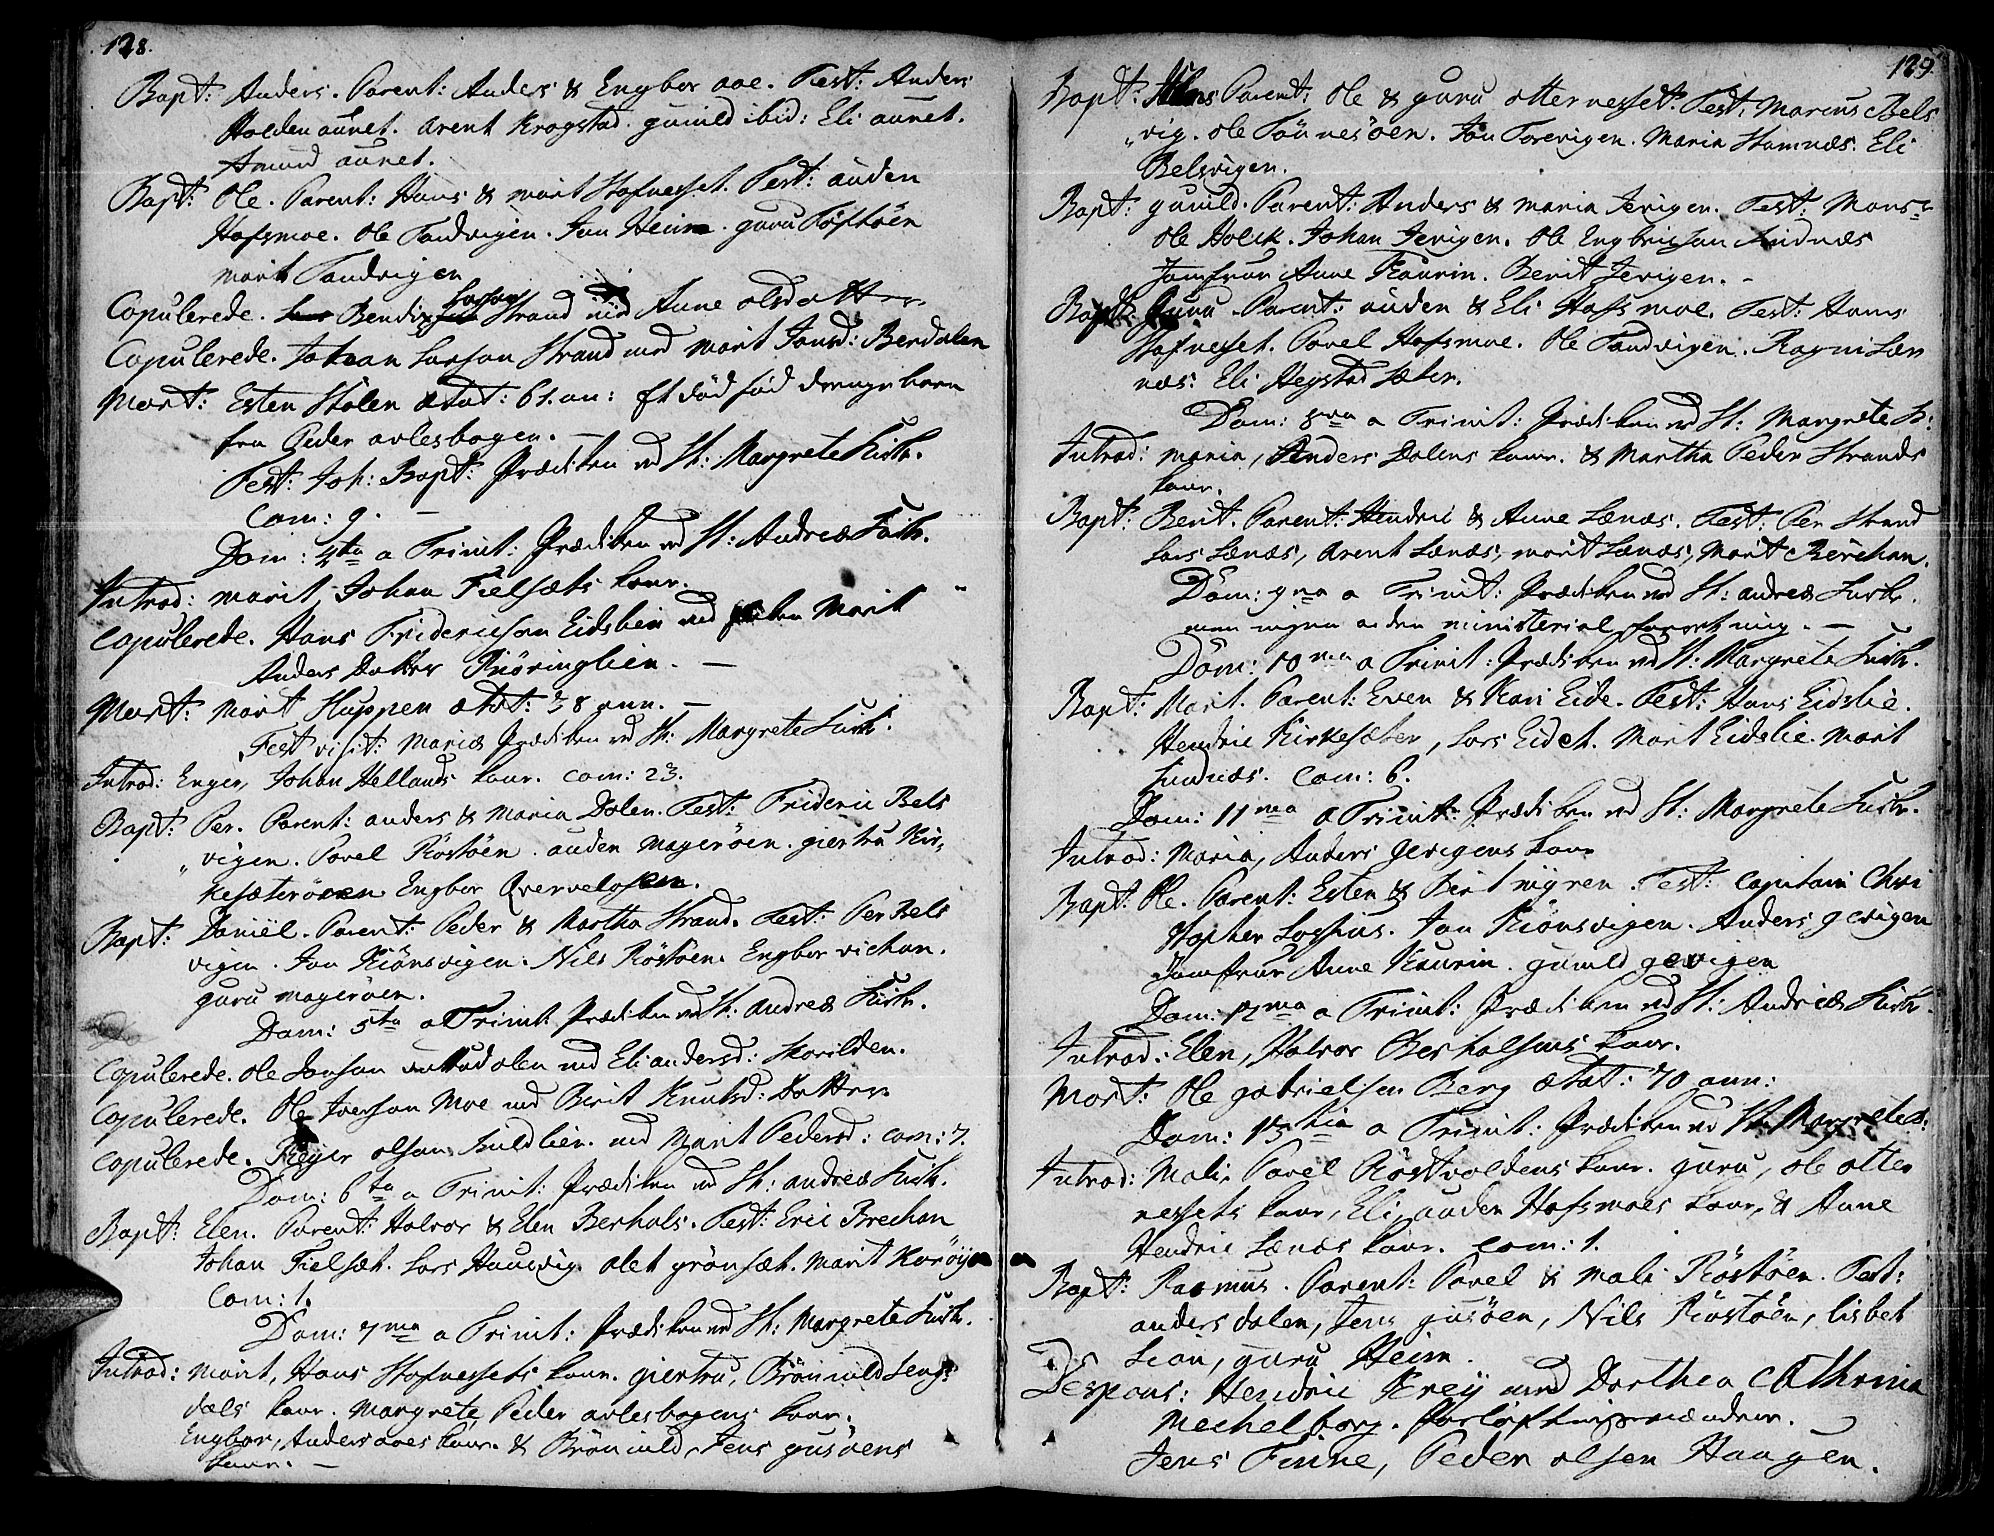 128.
Bapt: Anders. Parent: Anders & Engbor aae. Test: Anders
Holden aunet. Arent Krogstad. gunild ibid: Eli aunet.
Amund aunet.
Bapt: Ole. Parent: Hans & marit Stafnesset. Test: auden
Hofsmoe. Ole Tandvigen. Jon Heim. guru Röstöen
marit Tandvigen
Copulerede. Bendix Larson Strand med Anne olsdatter
Copulerede. Johan Larson Strand med marit Jonsd: Berdalen
Mort: Esten Stölen ætat: 61. an: Et död föd drenge barn
fra Peder avlesbogen. —
Fest: Joh: Bapt: Prædiken ved St: Margrete Kirk.
Com: 9. —
Dom: 4ta a Trinit: Prædiken ved St: Andreæ Kirk.
Introd: marit Johan Fielsæts kone.
Copulerede. Hans Fridericson Eidslien med Marit
Anders Datter Kiöringlien. —
Mort: Marit Huppen ætat: 38 ann. —
Fest visit: Mariæ Prædiken ved St: Margrete Kirk.
Introd: Enger, Johan Hellands kone. Com: 23.
Bapt: Per. Parent: anders & Maria Dolen. Test: Frideric Bels
vigen. Povel Röstöen. auden Mageröen. giertru Kir,
kesæteröen Engbor Qvernelosen.
Bapt: Daniël. Parent: Peder & Martha Strand. Test: Per Bels
vigen. Jon Kiönsvigen. Nils Röstöen. Engbor vichan.
guru mageröen.
Dom: 5ta a Trinit: Prædiken ved St: andreæ Kirk.
Copulerede. Ole Jonson med Eli andersd: Skorilden.
Copulerede. Ole Iverson Moe med Birit Knutsd: Datter
Copulerede. olson Kuldlien med Marit Pedersd: Com: 7.
Dom: 6ta a Trinit: Prædiken ved St: andreæ Kirk.
Bapt: Elen. Parent: Halvor & Elen Berhols. Test: Eric Brechan
Johan Fielsæt. Lars Hausvig. Olet grönsæt. Marit Koröyen
Com: 1.
Dom: 7ma a Trinit: Prædiken ved St: Margrete Kirk.
Introd: Marit, Hans Stafnessets kone. giertru, Brönild Leng:
dals kone. Margrete, Peder avlesbogens kone.
Engbor, Anders aaes kone. & Brönild, Jens gusöens
kone. —
129.
Bapt: Parent: Ole & guru otternesset. Test: Marcus Bels
vig. Ole Tönnesöen. Jon Torevigen. Maria Stamnæs. Eli
Belsvigen.
Bapt: gunild. Parent: Anders & maria Jevigen. Test: Mons:r
Ole Holck. Johan Jevigen. Ole Engbricson Lindnæs
Jomfrue Anne Kaurin. Berit Jevigen. —
Bapt: Guru. Parent: auden & Eli Hofsmoe. Test: Hans
Stafnesset. Povel Hofsmoe. Ole Tandvigen. Ragni Læn
næs: Eli Hegstad sæter.
Dom: 8va a Trinit: Prædiken ved St: Margrete K:
Introd: maria, Anders Dolens kone. & Martha Peder Strands
kone.
Bapt: Berit. Parent: Hendric & Anne Lænæs. Test: Per Strand
Lars Lænæs, Arent Lænæs, marit Lænæs, Marit Berchan.
Dom: 9na a Trinit: Prædiken ved St: andreæ Kirk.
men ingen anden ministerial forretning. —
Dom: 10ma a Trinit: Prædiken ved St: Margrete Kirk.
Bapt: Marit. Parent: Even & Kari Eide. Test: Hans Eidslie.
Hendric Kirkesæter, Lars Eidet. Marit Eidslie. Marit
Lindnæs. Com: 6.
Dom: 11ma a Trinit: Prædiken ved St: Margrete Kirk.
Introd: Maria, Anders Gevigens kone
Bapt: Ole. Parent: Esten & Berit nygren. Test: Capitain Chri
stopher Lossius. Jon Kiönsvigen. Anders gevigen
Jomfrue Anne Kaurin. gunild gevigen
Dom: 12ma a Trinit: Prædiken ved St: Andreæ Kirk.
Introd: Elen, Halvor Berholsens kone.
Mort: Ole gabrielsen Berg ætat: 70 ann:
Dom: 13tia a Trinit: Prædiken ved St: Margrete K:
Introd: Mali, Povel Röstvoldens kone. guru, ole otter
nessets kone, Eli, auden Hofsmoes kone, & Anne
Hendric Lænæs kone. Com: 1.
Bapt: Rasmus. Parent: Povel & Mali Röstöen. Test:
anders dolen, Jens gusöen, Nils Röstöen, lisbet
Lian, guru Heim.
Despons: Hendric Frey med Dorthea Cathrina
Mechelborg. forlöftningsmændene.
Jens Finne, Peder olsen Haugen.